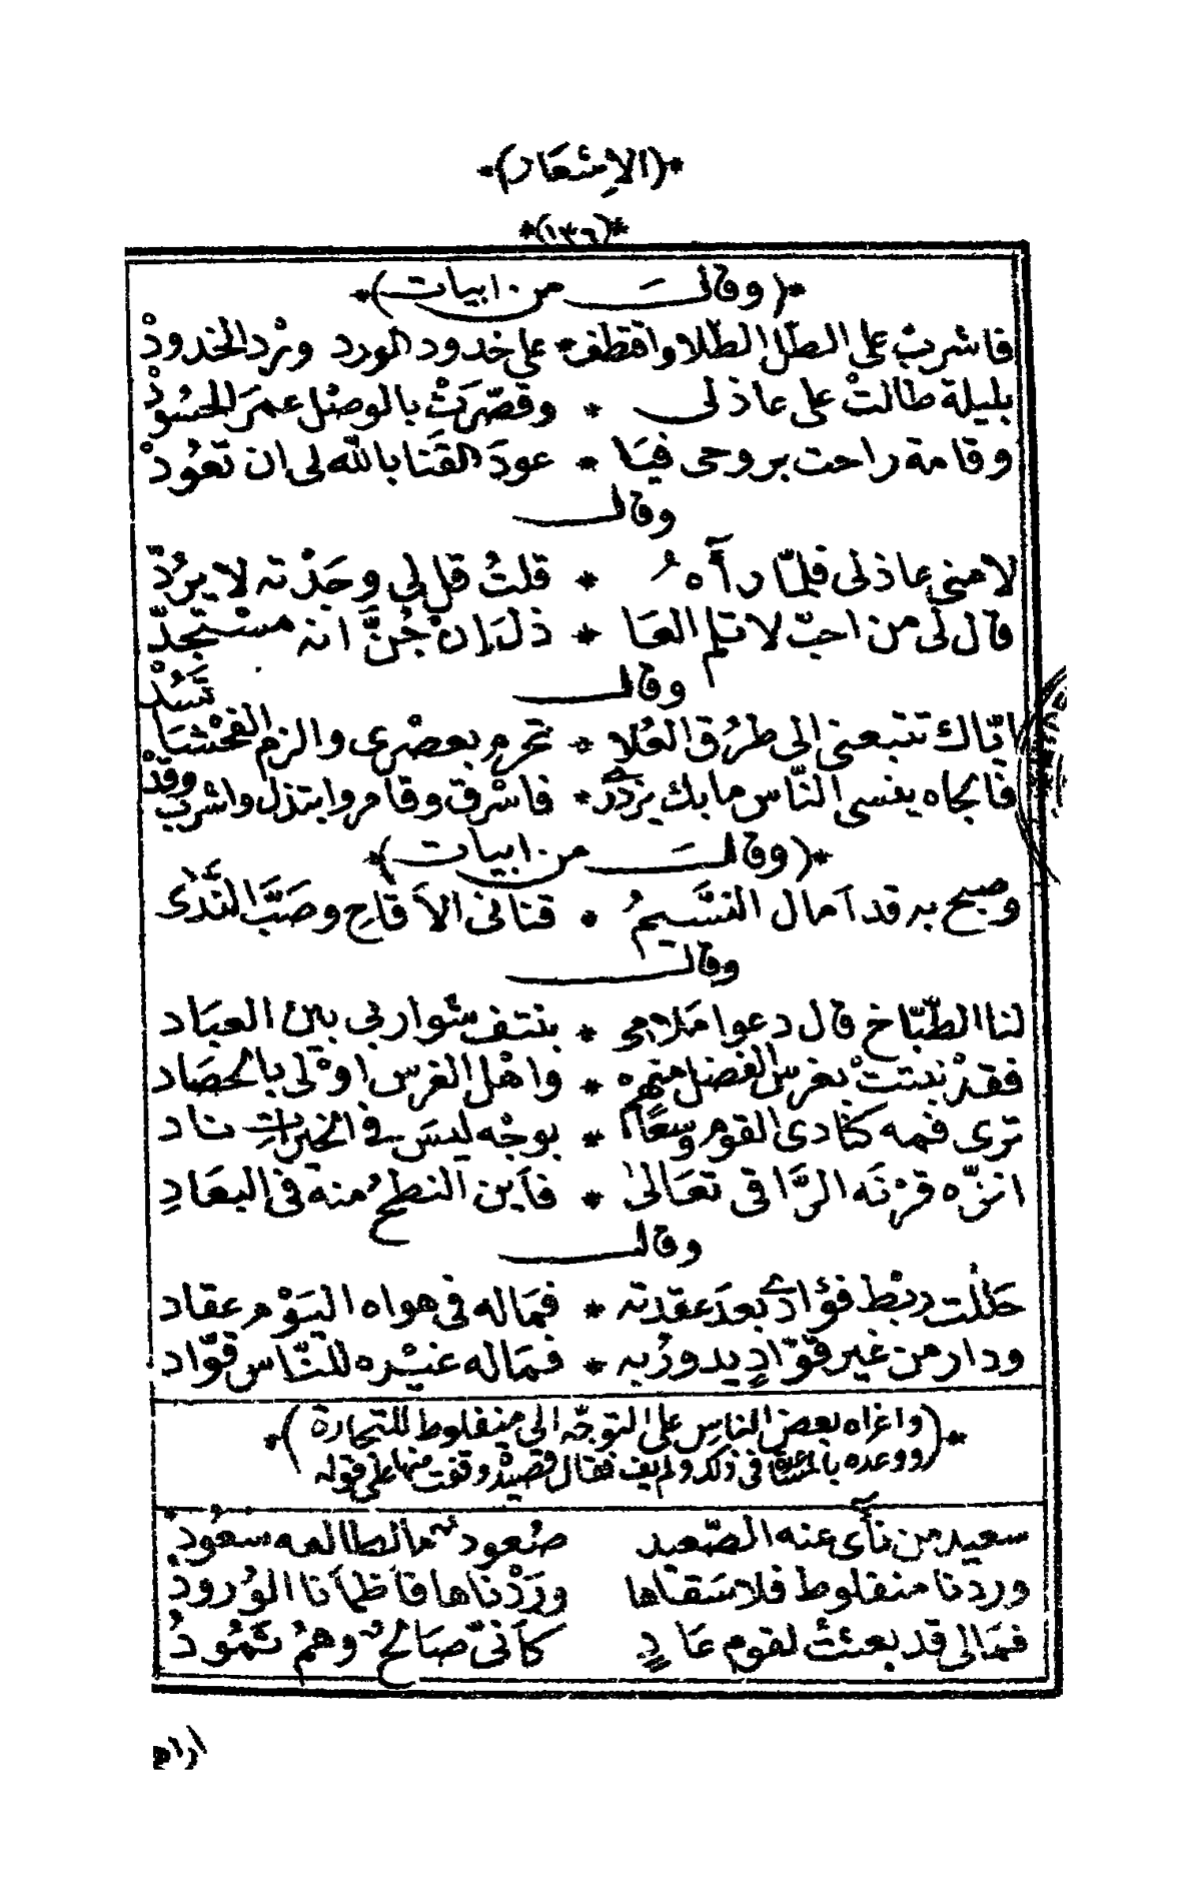 *(الاشعار)*
*(١٣٦)*
*(وقالَ من ابيات)*
فاشربْ على الطلّ الطّلا واقتطف * على خدود الورد وردَ الخدودْ
بليلة طالتْ على عاذلى * وقصّرَتْ بالوصْل عمرَ الحسُودْ
وقامة راحت بروحى فيَا * عودَ القَنا بالله لى ان تعُودْ
وقال
لامنى عاذلى فلمّا رأٓهُ * قلتُ قل لى وجَدْته لا يرُدّ
قال لى من احبّ لا تلم العَا * ذلَ إنْ جُنَّ انه مسْتجدّ
وقال
ايّاك تتبعنى الى طرُق العُلا * تحرم بعضرى والزم الفحْشَا تَسُدْ
فالجاه ينسى النّاس ما بك يزدرى * فاسْرق وقامر وابتذل واشرب وقدْ
*(وقالَ من ابيات)*
وصبح به قد آمال النسَّيمُ * قنانى الأقاح وصَبَّ النَّدٰى
وقال
لنا الطّبّاخ قال دعوا مَلامى * بنتف شواربى بين العبَاد
فقدْ نبتتْ بغرس الفضل منهم * واهْل الغرس اوْلى بالحصَاد
ترى فمه كنادى القوم وسعًا * بوجْه ليسَ فى الخيرات ناد
انزّه قرْنَه الرَّاقى تعَالىٰ * فاَين النطحُ منه فى البعَادِ
وقال
حَللت ربْط فؤادى بعدَ عقدته * فمَاله فى هواه اليَوْم عقاد
ودار من غير قوّادٍ يدورُ به * فمَاله غيْره للنّاس قوّاد
*(واغراه بعض الناسِ على التوجّه الى منفلوط للتجارة
ووعده بالمساعدة فى ذلك ولم يف فقال قصيدة وقفت منها على قوله)*
سعيد من نأٓى عنه الصّعيد صُعود ما لطالعه سعُود
وردنا منفلوط فلا سَقاها ورَدْناها فأظمأنا الوُرودُ
فمَالى قد بعثتُ لقوم عَادٍ كأنىّ صَالحٌ وهمُ ثمُودُ